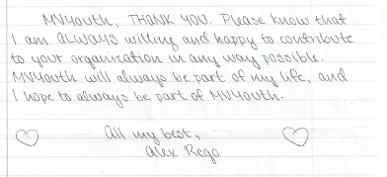 MVYouth, THANK YOU. Please know that
I am ALWAYS willing and happy to contribute
to your organization in any way possible.
MVYouth will always be part of my life, and
I hope to always be part of MVYouth.
All my best,
Alex Rego